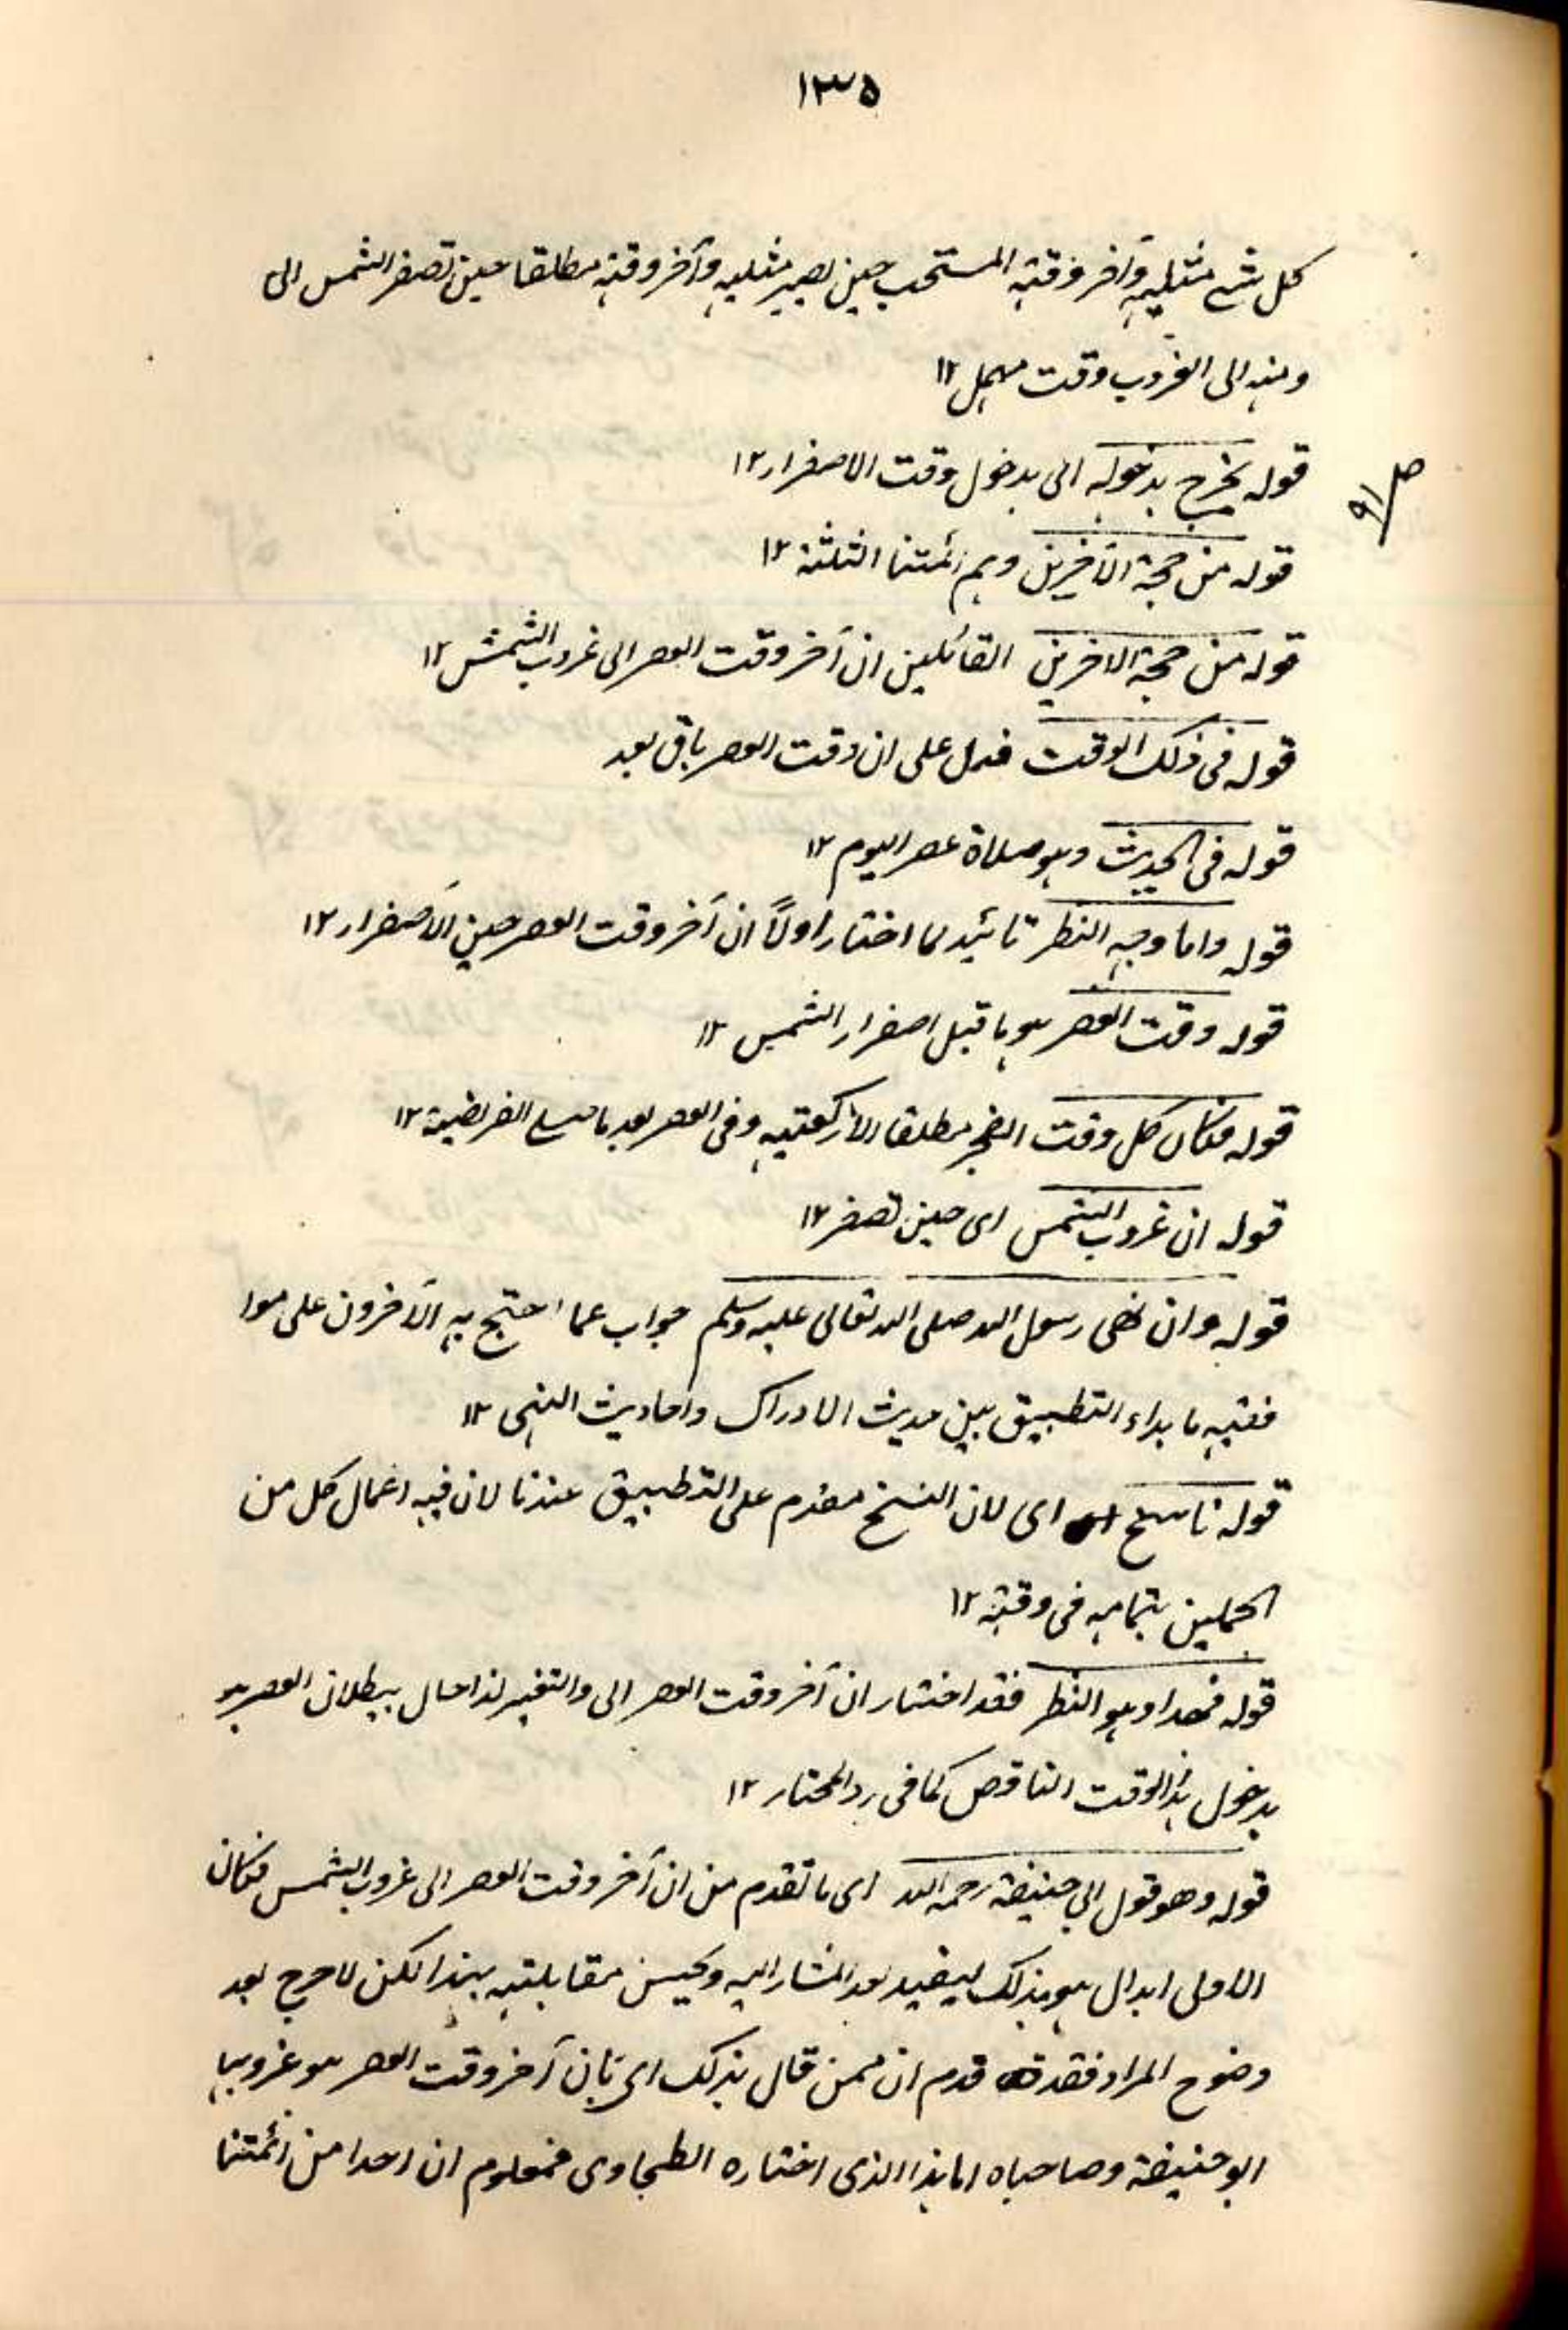 ١٣٥
كل شئ مثليه وآخر وقته المستحب حين يصير مثليه وآخر وقته مطلقا حين تصفر الشمس الى
ومنه الى الغروب وقت مهمل ١٢
قوله يخرج بدخوله اى بدخول وقت الاصفرار ١٢
ص/٩١
قوله من حجة الآخرين وهم ائمتنا الثلثة ١٢
قوله من حجة الآخرين القائلين ان آخر وقت العصر الى غروب الشمس ١٢
قوله فى ذلك الوقت فدل على ان وقت العصر باق بعد
قوله فى الحديث وهو صلاة عصر اليوم ١٢
قوله واما وجه النظر تائيد لما اختار اولاً ان آخر وقت العصر حين الاصفرار ١٢
قوله وقت العصر هو ما قبل اصفرار الشمس ١٢
قوله فكان كل وقت الفجر مطلقا الا ركعتيه وفى العصر بعد ما صلى الفريضة ١٢
قوله ان غروب الشمس اى حين تصفر ١٢
قوله وان نهى رسول الله صلى الله تعالى عليه وسلم جواب عما احتج به الآخرون على
ما بداء التطبيق بين حديث الادراك واحاديث النهى ١٢
قوله ناسخ اى لان النسخ مقدم على التطبيق عندنا لان فيه اعمال كل من
بتمامه فى وقته ١٢
قوله فهذا وهو النظر فقد اختار ان آخر وقت العصر الى والتغير لذا حال ببطلان العصر
بدخول هذا الوقت الناقص كما فى رد المحتار ١٢
قوله وهو قول ابي حنيفة رحمه الله اى ما تقدم من ان آخر وقت العصر الى غروب الشمس فكان
الاولى ابدال هو بذلك ليفيد بعد المشار اليه ويحسن مقابلته بهذا لكن لا حرج بعد
وضوح المراد فقد قدم ان ممن قال بذلك اى بان آخر وقت العصر هو غروبها
ابو حنيفة وصاحباه اما هذا الذى اختاره الطحاوى فمعلوم ان احدا من ائمتنا